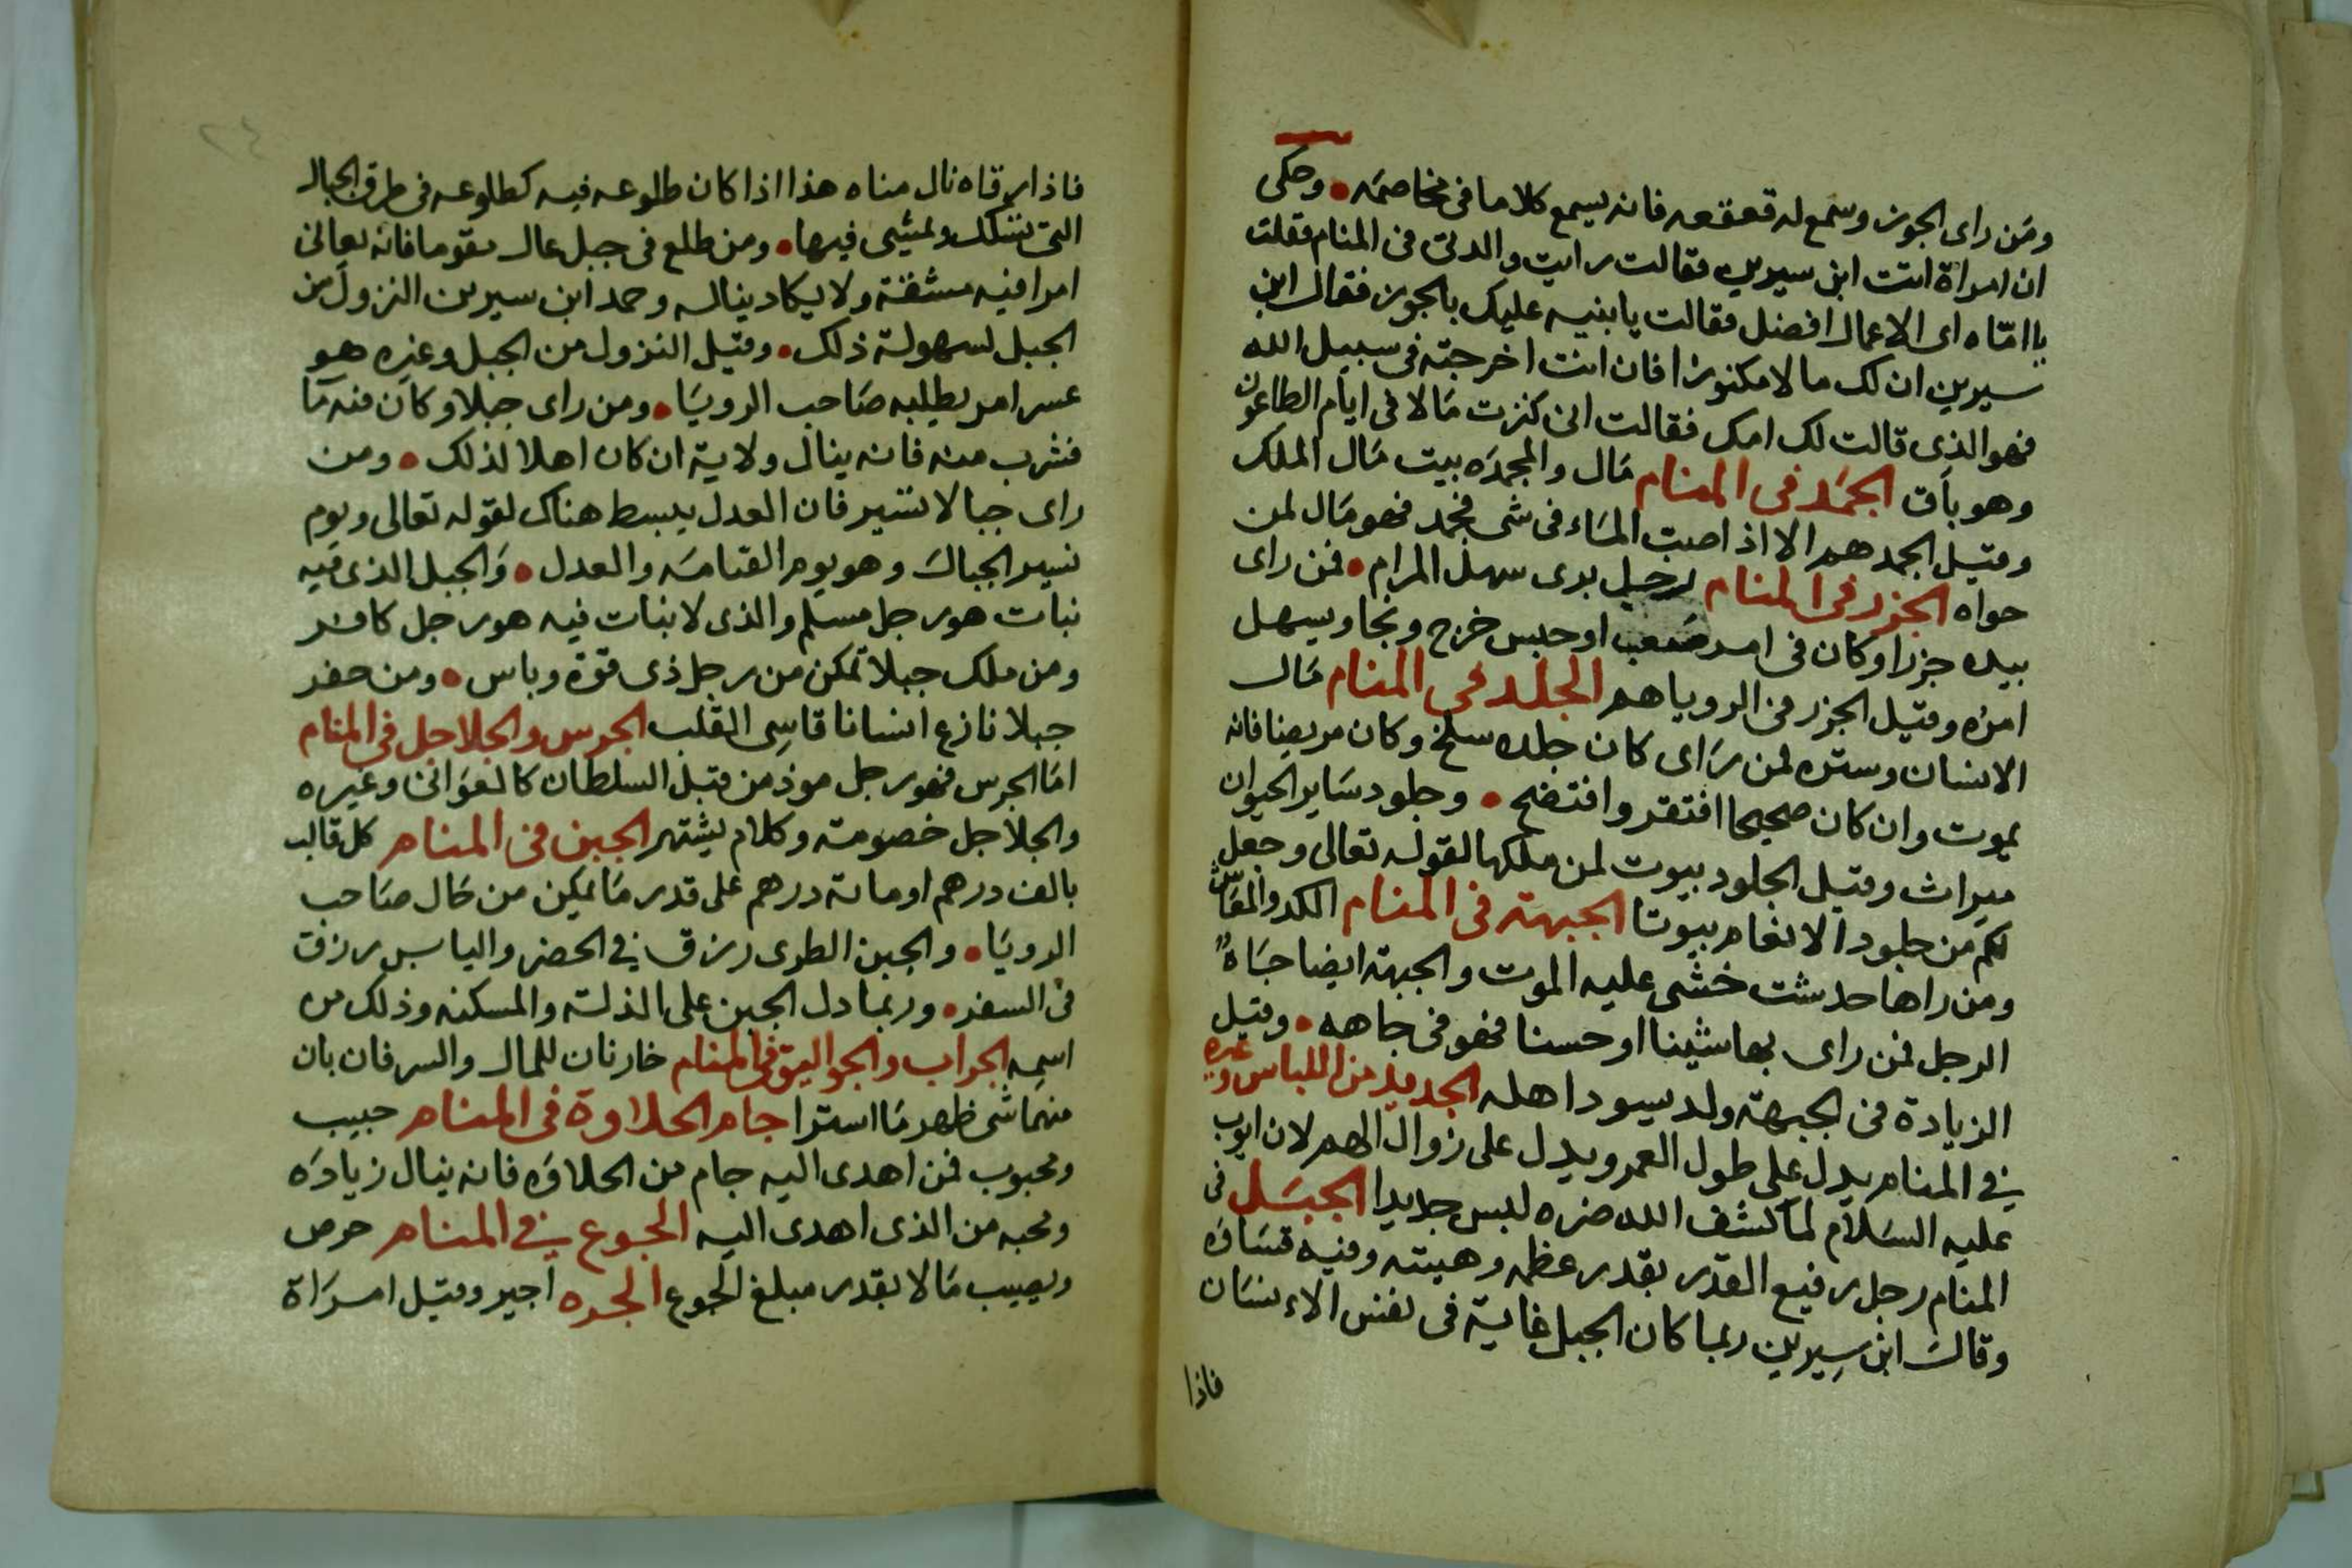 ومن راى الجوز وسمع له قعقعه فانه يسمع كلاما فى مخاصمه • وحكى
ان امراة اتت ابن سيرين فقالت رايت والدتى فى المنام فقلت
يا امّاه اى الاعمال افضل فقالت يا بنيه عليك بالجوز فقال ابن
سيرين ان لك مالا مكنوزا فان انت اخرجته فى سبيل الله
فهو الذى قالت لك امك فقالت انى كنزت مالا فى ايام الطاعون
وهو باق الجمد فى المنام مال والمجمده بيت مال الملك
وقيل الجمد هم الا اذا صبت الماء فى شى فجمد فهو مال لمن
حواه الجزر فى المنام لرجل يرى سهل المرام • فمن راى
بيده جزرا وكان فى امر صعب او حبس خرج ونجا ويسهل
امره وقيل الجزر فى الرويا هم الجلد فى المنام مال
الانسان وستره لمن راى كان جلده سلخ وكان مريضا فانه
يموت وان كان صحيحا افتقر وافتضح • وجلود ساير الحيوان
ميراث وقيل الجلود بيوت لمن ملكها لقوله تعالى وجعل
لكم من جلود الانعام بيوتا الجبهة فى المنام الكد والمعاش
ومن راها حدشت خشى عليه الموت والجبهة ايضا جاه
الرجل فمن راى بها شينا او حسنا فهو فى جاهه • وقيل
الزيادة فى الجبهة ولد يسود اهله الجديد من اللباس وغيره
فى المنام يدل على طول العمر ويدل على زوال الهم لان ايوب
عليه السلام لما كشف الله ضره لبس جديدا الجبل فى
المنام رجل رفيع القدر بقدر عظمه وهيبته وفيه قساوه
وقال ابن سيرين ربما كان الجبل غاية فى نفس الاءنسان
فاذا
٢٤
فاذا ارقاه نال مناه هذا اذا كان طلوعه فيه كطلوعه فى طرق الجبال
التى تسلك ويمشى فيها • ومن طلع فى جبل عال مقوما فانه يعانى
امرا فيه مشقة ولا يكاد يناله وحمد ابن سيرين النزول من
الجبل لسهولة ذلك • وقيل النزول من الجبل وغيره هو
عسر امر يطلبه صاحب الرويا • ومن راى جبلا وكان فيه ما
فشرب منه فانه ينال ولاية ان كان اهلا لذلك • ومن
راى جبالا تسير فان العدل يبسط هناك لقوله تعالى ويوم
نسير الجبال وهو يوم القيامه والعدل • والجبل الذى فيه
نبات هو رجل مسلم والذى لا نبات فيه هو رجل كافر
ومن ملك جبلا تمكن من رجل ذى قوة وباس • ومن حفر
جبلا نازع انسانا قاسى القلب الجرس والجلاجل فى المنام
اما الجرس فهو رجل موذ من قبل السلطان كالعوانى وغيره
والجلاجل خصومة وكلام يشتهر الجبن فى المنام كل قالب
بالف درهم او مائة درهم على قدر ما يمكن من حال صاحب
الرويا • والجبن الطرى رزق فى الحضر واليابس رزق
فى السفر • وربما دل الجبن على الذلة والمسكنه وذلك من
اسمه الجراب والجواليق فى المنام خازنان للمال والسر فان بان
منهما شى ظهر ما استرا جام الحلاوة فى المنام حبيب
ومحبوب فمن اهدى اليه جام من الحلاوه فانه ينال زياده
ومحبه من الذى اهدى اليه الجوع فى المنام حرص
ويصيب مالا بقدر مبلغ الجوع الجره اجير وقيل امراة